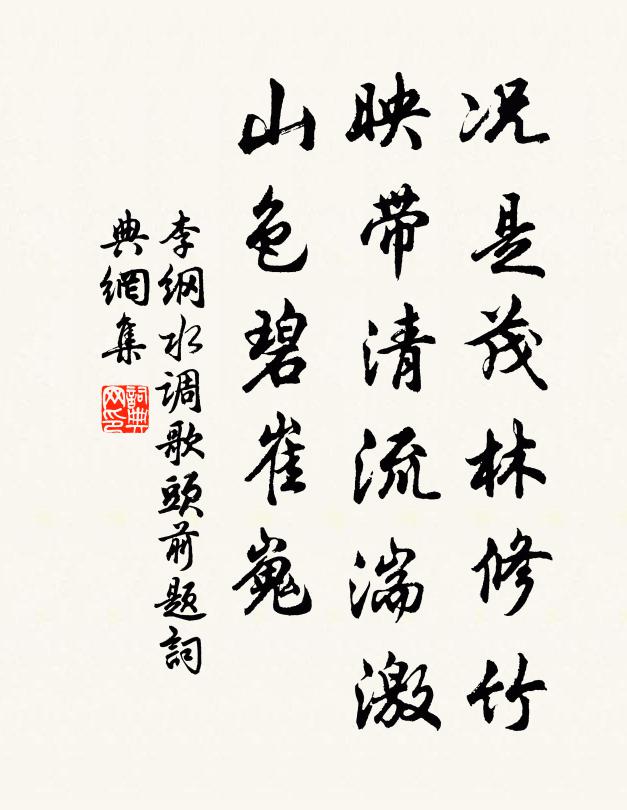 况是茂林修竹
映带清流湍激
山色碧崔嵬
李纲水调歌頭前题詞
典網集
詞典
网印